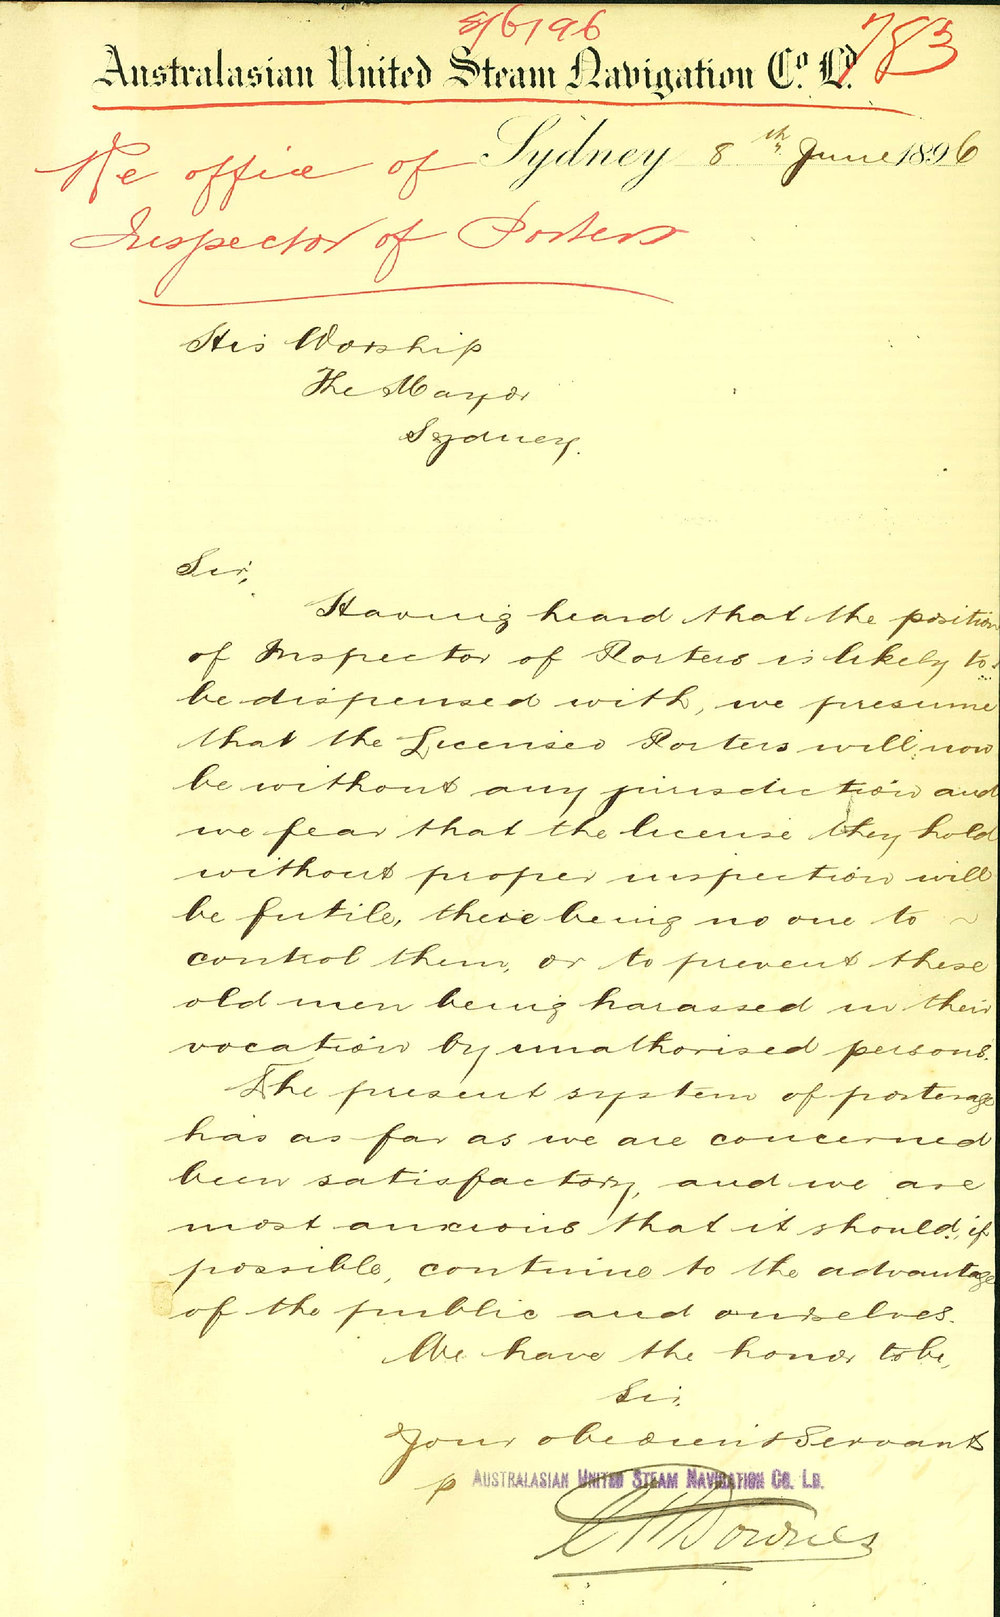 8/6/96
783
Australasian United Steam Navigation Co. Ld.
Sydney 8th June 1896
Re office of
Inspector of Porters
His Worship
The Mayor
Sydney.
Sir,
Having heard that the position
of Inspector of Porters is likely to
be dispensed with, we presume
that the Licensed Porters will now
be without any jurisdiction and
we fear that the license they hold
without proper inspection will
be futile, there being no one to
control them, or to prevent these
old men being harassed in their
vocation by unathorised persons.
The present system of porterage
has as far as we are concerned
been satisfactory, and we are
most anxious that it should, if
possible, continue to the advantage
of the public and ourselves.
We have the honor to be,
Sir,
Your obedient Servants
p AUSTRALASIAN UNITED STEAM NAVIGATION CO. LD.
Downes